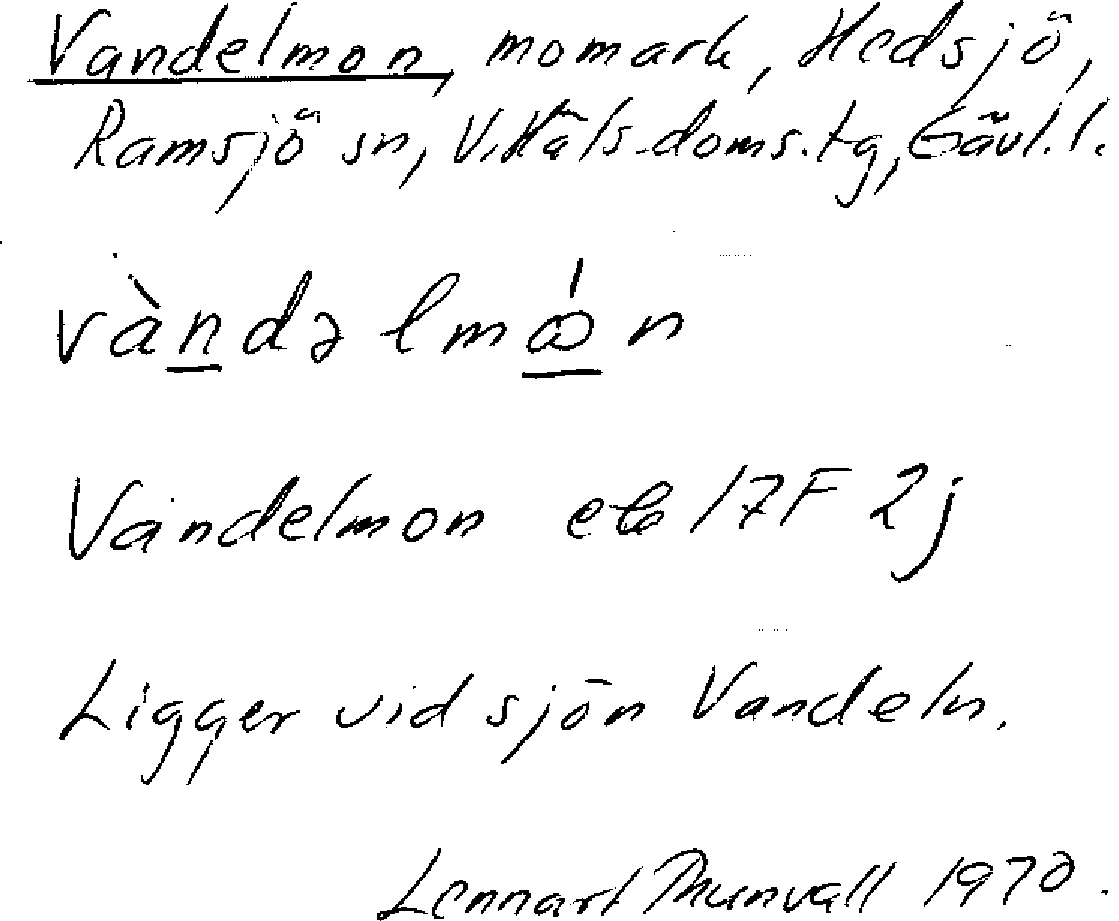 Vandelmon, momark, Hedsjö,
Ramsjö sn, V. Häls. doms.tg, Gävl. l.
vàndəlmón
Vandelmon eb 17F 2j
Ligger vid sjön Vandeln.
Lennart Thunvall 1970.